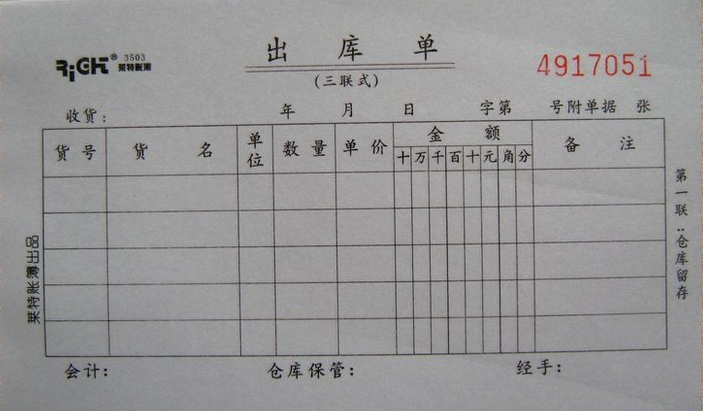 RiGHT® 3503
莱特账簿
出库单
(三联式)
4917051
收货： 年 月 日 字第 号附单据 张
货号 货名 单位 数量 单价 金额 备注
十 万 千 百 十 元 角 分
第一联：仓库留存
莱特账簿出品
会计： 仓库保管： 经手：